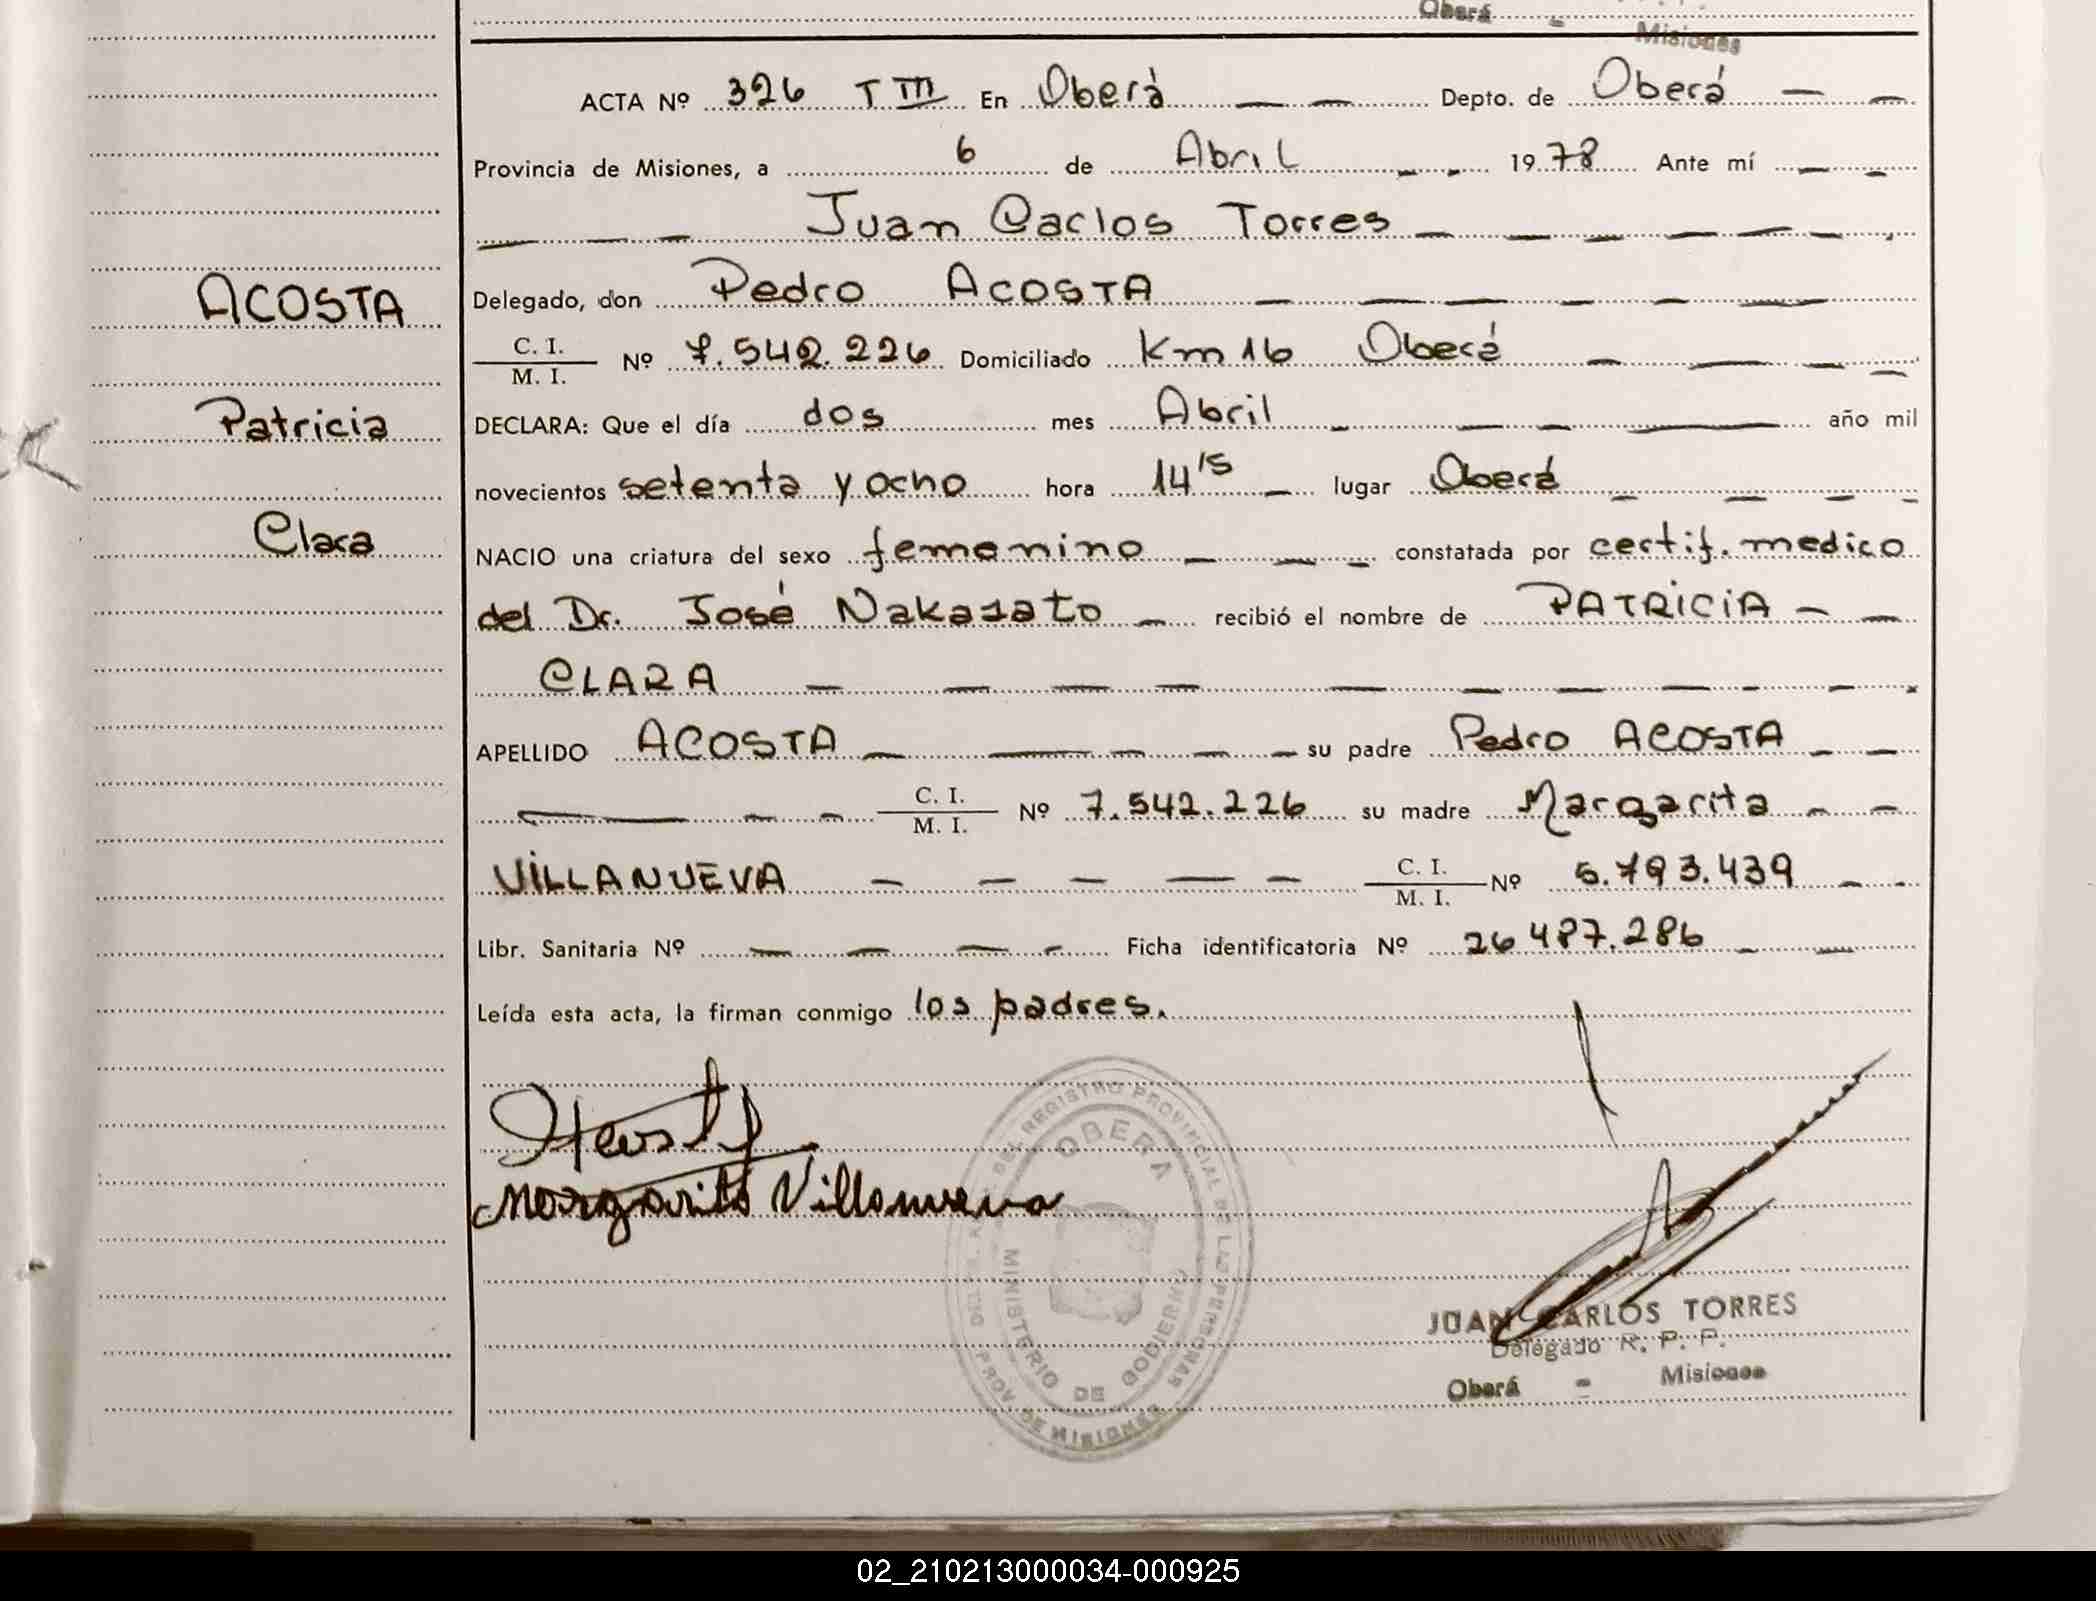 Oberá - Misiones
ACTA Nº 326 T III En Oberá — — Depto. de Oberá — —
Provincia de Misiones, a 6 de Abril — - 1978 Ante mí — -
— — — Juan Carlos Torres — — — — — — -
Delegado, don Pedro ACOSTA — — — — — —
C. I.
M. I. Nº 7.542.226 Domiciliado Km 16 Oberá — — — —
DECLARA: Que el día dos mes Abril — — — — año mil
novecientos setenta y ocho hora 14 15 — lugar Oberá — — — —
NACIO una criatura del sexo femenino — — — constatada por certif. medico
del Dr. José Nakasato — recibió el nombre de PATRICIA — —
CLARA — — — — — — — — — — -
APELLIDO ACOSTA — — — — — su padre Pedro ACOSTA — —
— — — C. I.
M. I. Nº 7.542.226 su madre Margarita — —
VILLANUEVA — — — — — C. I.
M. I. Nº 5.793.439 — -
Libr. Sanitaria Nº — — — - Ficha identificatoria Nº 26 487.286 — —
Leída esta acta, la firman conmigo los padres.
ACOSTA
Patricia
Clara
Margarita Villanueva
DEL REGISTRO PROVINCIAL DE LAS PERSONAS
OBERA
MINISTERIO DE GOBIERNO
PROV. DE MISIONES
JUAN CARLOS TORRES
Delegado R. P. P.
Oberá - Misiones
02_210213000034-000925